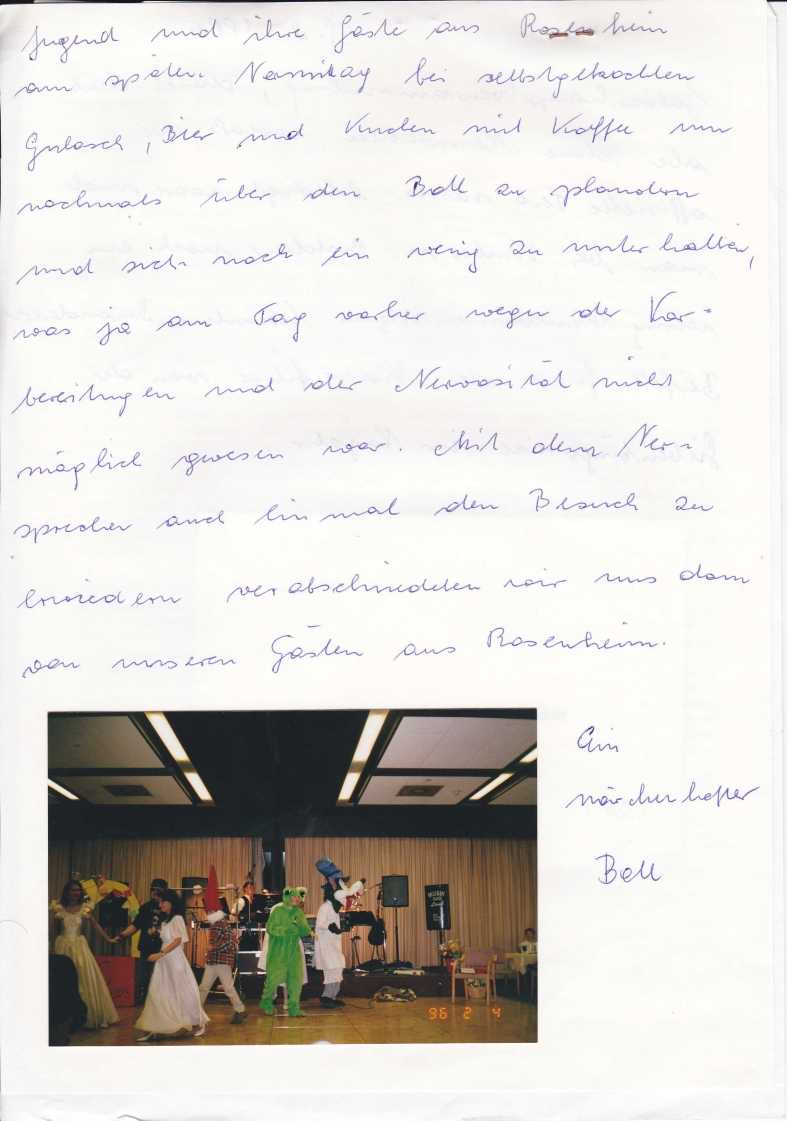 Jugend und ihre Gäste aus Rosenheim
am späten Vormittag bei selbstgekochten
Gulasch, Bier und Kuchen mit Kaffee um
nochmals über den Ball zu plaudern
und sich noch ein wenig zu unterhalten,
was ja am Tag vorher wegen der Vor-
bereitungen und der Nervosität nicht
möglich gewesen war. Mit dem Ver-
sprechen auch einmal den Besuch zu
erwiedern verabschiedeten wir uns dann
von unseren Gästen aus Rosenheim.
Ein
märchenhafter
Ball
96 2 4